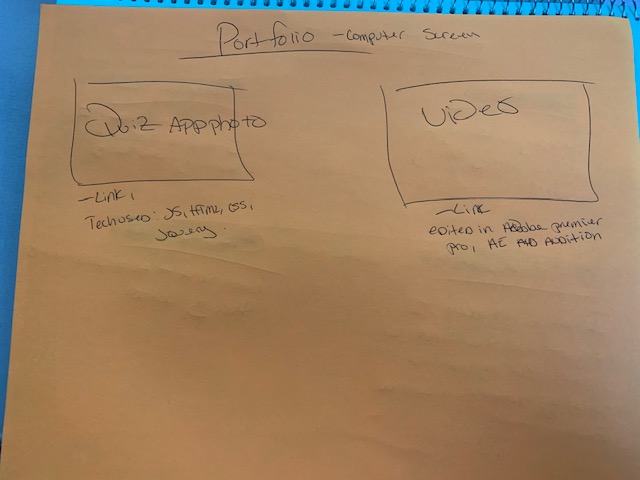 Portfolio - Computer Screen
Quiz App Photo
- Link,
Tech used: JS, HTML, CSS,
Jquery.
Video
- Link
edited in Adobe premier
pro, AE AND Audition